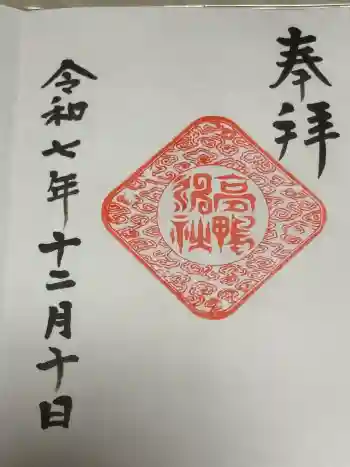 奉拝
高鴨神社
令和七年十二月十日